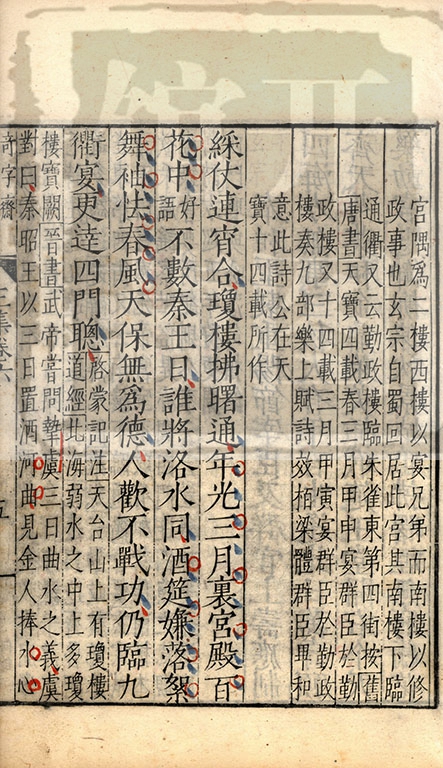 宮隅爲二樓西樓以宴兄弟而南樓以修
政事也玄宗自蜀回居此宮其南樓下臨
通衢又云勤政樓臨朱雀東第四街按舊
唐書天寶四載春三月甲申宴群臣於勤
政樓又十四載三月甲寅宴群臣於勤政
樓奏九部樂上賦詩效栢梁體群臣畢和
意此詩公在天
寶十四載所作
綵仗連宵合瓊樓拂曙通年光三月裏宮殿百
花中好語不數秦王日誰將洛水同酒筵嫌落絮
舞袖怯春風天保無爲德人歡不戰功仍臨九
衢宴更達四門聰啓蒙記注天台山上有瓊樓
道經北海弱水之中上多瓊
樓寶闕晉書武帝嘗問摯虞三日曲水之義虞
對曰秦昭王以三日置酒河曲見金人捧水心
奇字齋
集卷六
五